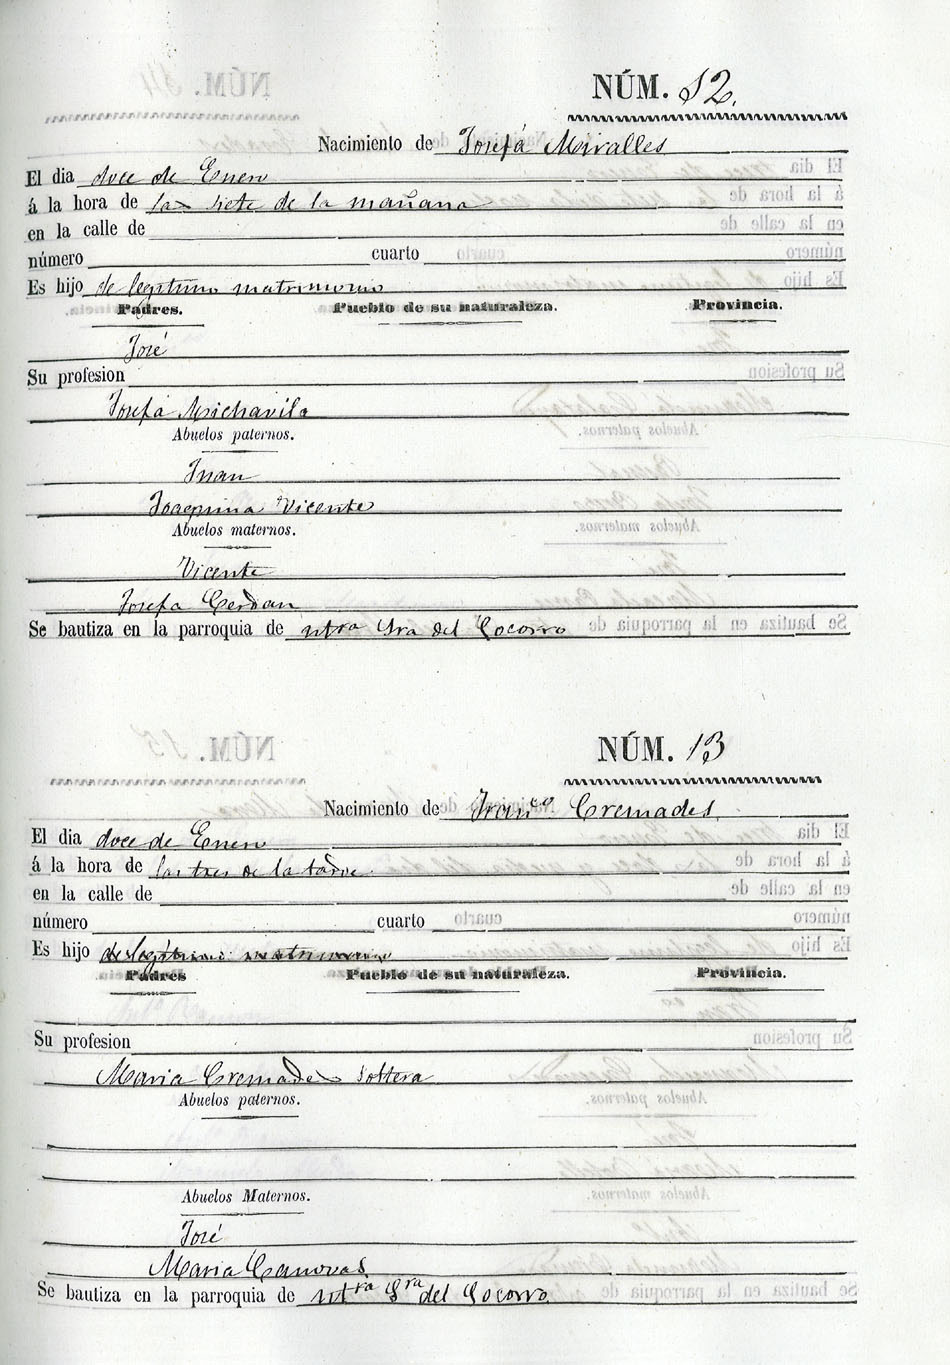 NÚM. 12.
Nacimiento de Josefa Miralles
El dia doce de Enero
á la hora de las siete de la mañana
en la calle de
número cuarto
Es hijo de legitimo matrimonio
Padres. Pueblo de su naturaleza. Provincia.
José
Su profesion
Josefa Michavila
Abuelos paternos.
Juan
Joaquina Vicente
Abuelos maternos.
Vicente
Josefa Cerdan
Se bautiza en la parroquia de ntra Sra del Socorro
NÚM. 13
Nacimiento de Franco. Cremades.
El dia doce de Enero
á la hora de las tres de la tarde.
en la calle de
número cuarto
Es hijo de legitimo matrimonio
Padres Pueblo de su naturaleza. Provincia.
Su profesion
Maria Cremades soltera
Abuelos paternos.
Abuelos Maternos.
José
Maria Canovas
Se bautiza en la parroquia de ntra Sra del Socorro.